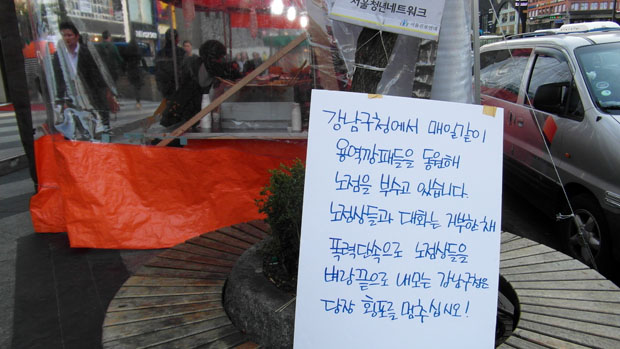 서울청년네트워크
강남구청에서 매일같이
용역깡패들을 동원해
노점을 부수고 있습니다.
노점상들과 대화는 거부한채
폭력단속으로 노점상들을
벼랑끝으로 내모는 강남구청은
당장 횡포를 멈추십시오!